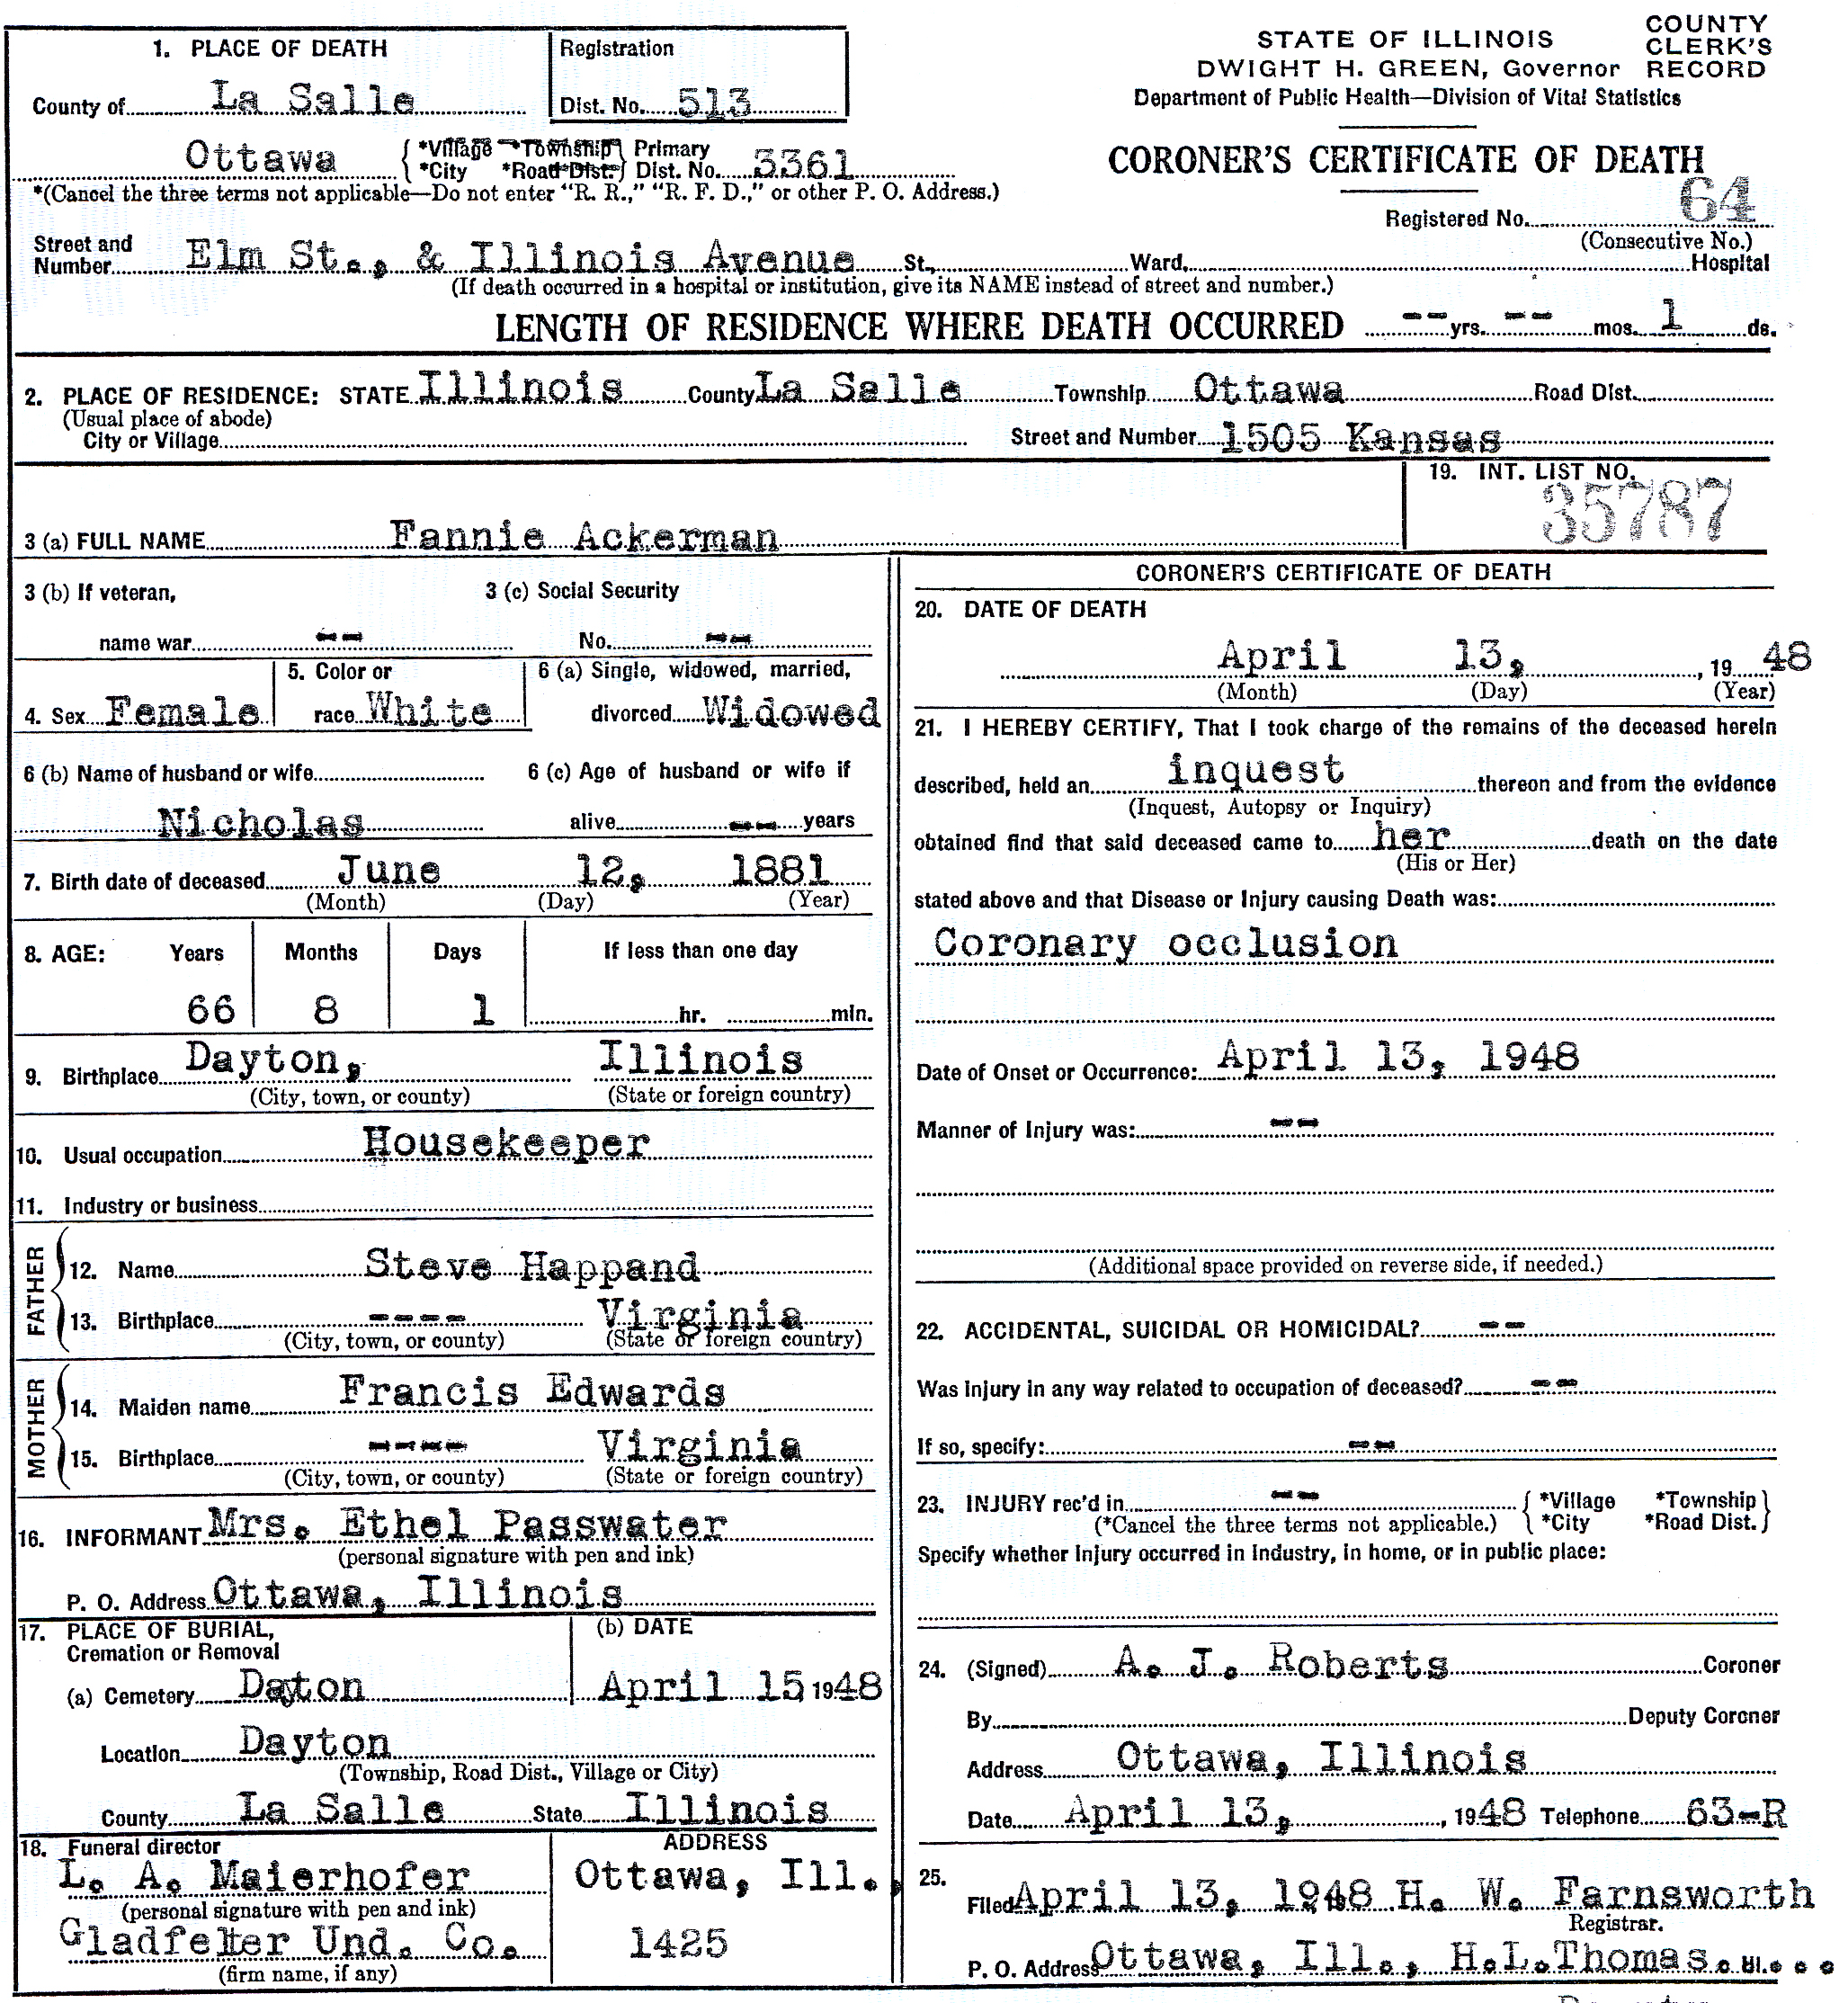 STATE OF ILLINOIS
DWIGHT H. GREEN, Governor
COUNTY CLERK'S RECORD
Department of Public Health—Division of Vital Statistics
CORONER'S CERTIFICATE OF DEATH
Registered No. 64
(Consecutive No.)
1. PLACE OF DEATH
County of La Salle
Registration
Dist. No. 513
Ottawa { *Village *Township } Primary
*City *Road Dist. Dist. No. 3361
*(Cancel the three terms not applicable—Do not enter "R. R.," "R. F. D.," or other P. O. Address.)
Street and
Number Elm St., & Illinois Avenue St., Ward, Hospital
(If death occurred in a hospital or institution, give its NAME instead of street and number.)
LENGTH OF RESIDENCE WHERE DEATH OCCURRED -- yrs. -- mos. 1 ds.
2. PLACE OF RESIDENCE: STATE Illinois County La Salle Township Ottawa Road Dist.
(Usual place of abode)
City or Village Street and Number 1505 Kansas
19. INT. LIST NO.
35787
3 (a) FULL NAME Fannie Ackerman
3 (b) If veteran, 3 (c) Social Security
name war -- No. --
4. Sex Female
5. Color or
race White
6 (a) Single, widowed, married,
divorced Widowed
6 (b) Name of husband or wife 6 (c) Age of husband or wife if
Nicholas alive -- years
7. Birth date of deceased June 12, 1881
(Month) (Day) (Year)
8. AGE: Years Months Days If less than one day
66 8 1 hr. min.
9. Birthplace Dayton, Illinois
(City, town, or county) (State or foreign country)
10. Usual occupation Housekeeper
11. Industry or business
FATHER
12. Name Steve Happand
13. Birthplace ---- Virginia
(City, town, or county) (State or foreign country)
MOTHER
14. Maiden name Francis Edwards
15. Birthplace ---- Virginia
(City, town, or county) (State or foreign country)
16. INFORMANT Mrs. Ethel Passwater
(personal signature with pen and ink)
P. O. Address Ottawa, Illinois
17. PLACE OF BURIAL, (b) DATE
Cremation or Removal
(a) Cemetery Dayton April 15, 1948
Location Dayton
(Township, Road Dist., Village or City)
County La Salle State Illinois
18. Funeral director ADDRESS
L. A. Maierhofer Ottawa, Ill.,
(personal signature with pen and ink)
Gladfelter Und. Co. 1425
(firm name, if any)
CORONER'S CERTIFICATE OF DEATH
20. DATE OF DEATH
April 13, , 19 48
(Month) (Day) (Year)
21. I HEREBY CERTIFY, That I took charge of the remains of the deceased herein
described, held an inquest thereon and from the evidence
(Inquest, Autopsy or Inquiry)
obtained find that said deceased came to her death on the date
(His or Her)
stated above and that Disease or Injury causing Death was:
Coronary occlusion
Date of Onset or Occurrence: April 13, 1948
Manner of Injury was: --
(Additional space provided on reverse side, if needed.)
22. ACCIDENTAL, SUICIDAL OR HOMICIDAL? --
Was Injury in any way related to occupation of deceased? --
If so, specify: --
23. INJURY rec'd in -- { *Village *Township }
(*Cancel the three terms not applicable.) *City *Road Dist.
Specify whether Injury occurred in Industry, in home, or in public place:
24. (Signed) A. J. Roberts Coroner
By Deputy Coroner
Address Ottawa, Illinois
Date April 13, , 1948 Telephone 63-R
25.
Filed April 13, 1948 H. W. Farnsworth
Registrar.
P. O. Address Ottawa, Ill., H.L.Thomas